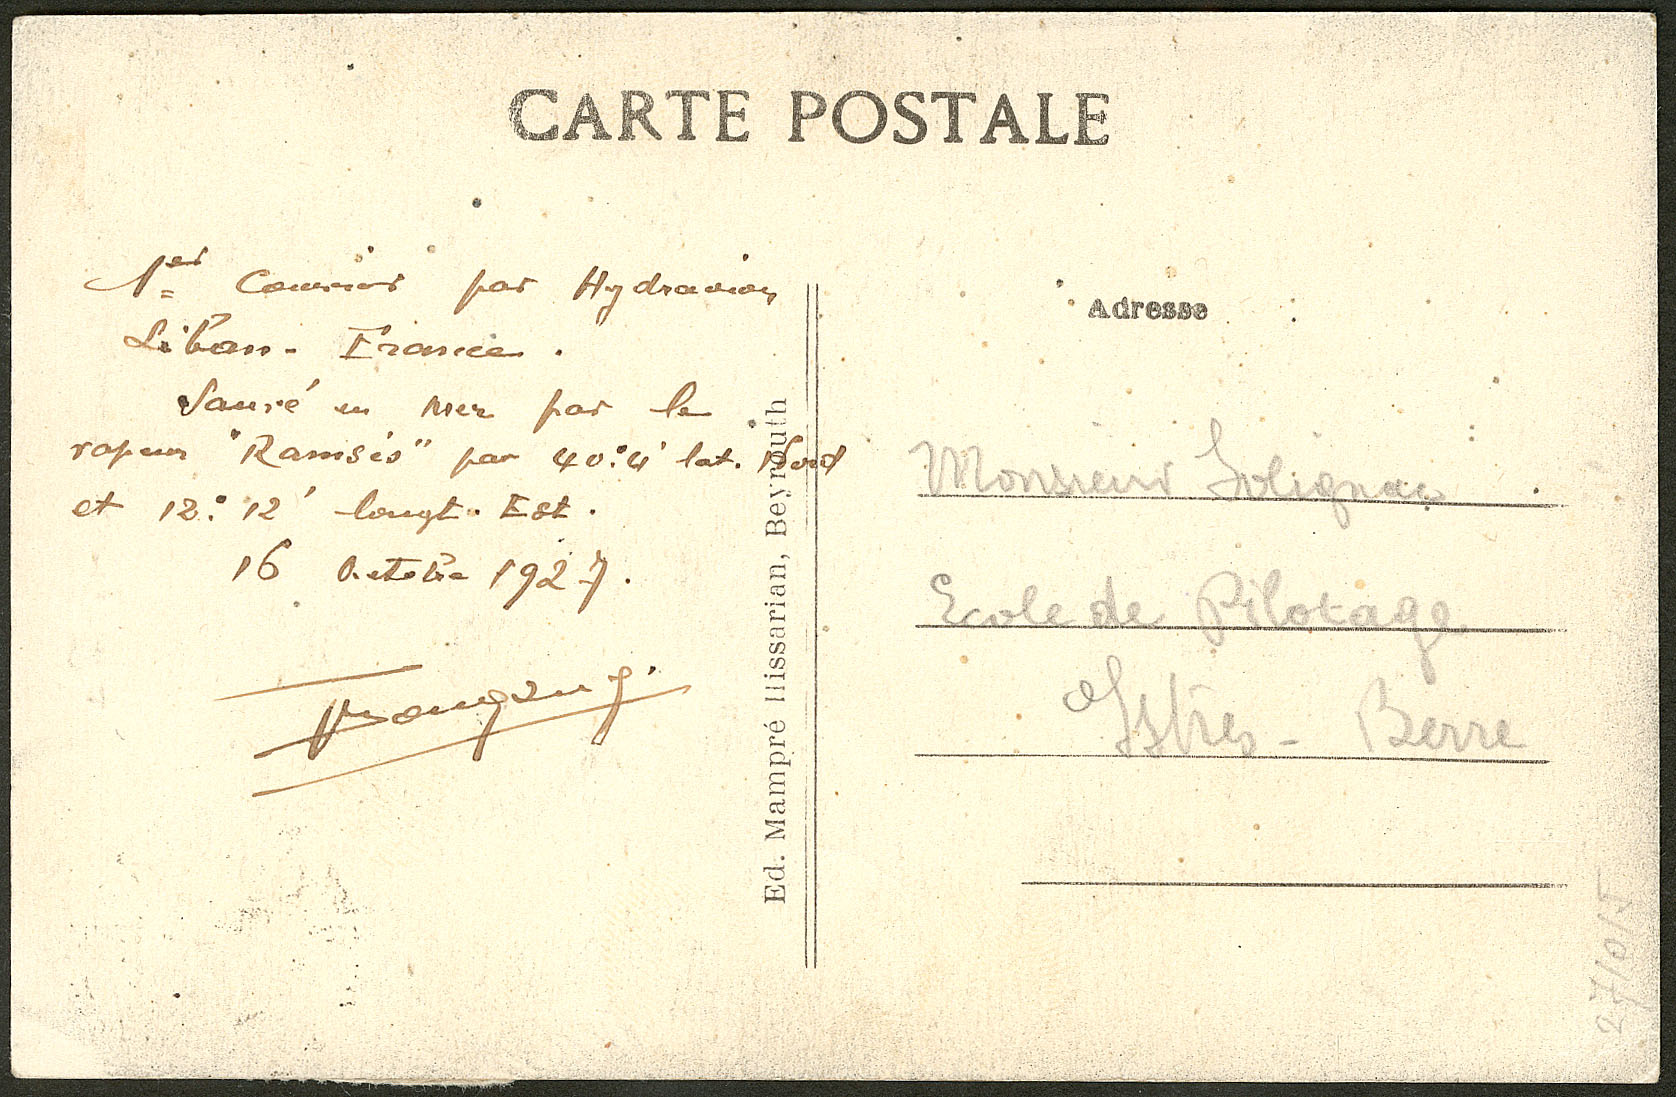 CARTE POSTALE
1er Courrier par Hydravion
Liban - France.
Sauvé en Mer par le
vapeur "Ramsès" par 40° 4' lat. Nord
et 12° 12' longt. Est.
16 Octobre 1927.
Ed. Mampré Ilissarian, Beyrouth
Adresse
Monsieur Solignac
Ecole de Pilotage
Istres - Berre
27/10/5